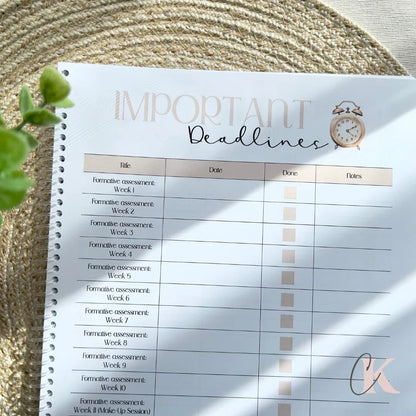 IMPORTANT
Deadlines
Title Date Done Notes
Formative assessment:
Week 1
Formative assessment:
Week 2
Formative assessment:
Week 3
Formative assessment:
Week 4
Formative assessment:
Week 5
Formative assessment:
Week 6
Formative assessment:
Week 7
Formative assessment:
Week 8
Formative assessment:
Week 9
Formative assessment:
Week 10
Formative assessment:
Week 11 (Make-Up Session)
CK